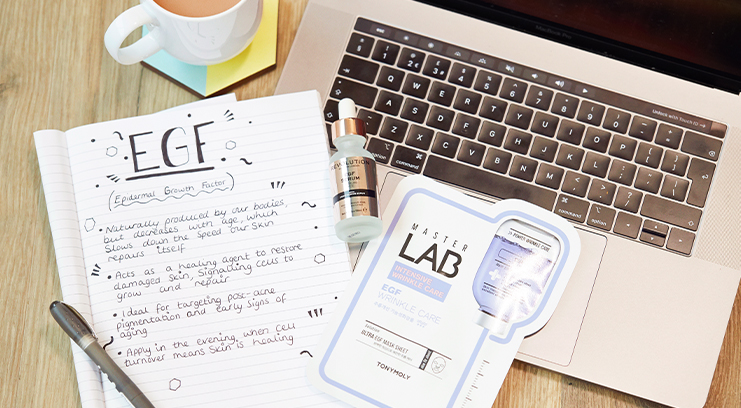 EGF
(Epidermal Growth Factor)
• Naturally produced by our bodies,
but decreases with age, which
slows down the speed our skin
repairs itself
• Acts as a healing agent to restore
damaged skin, signalling cells to
grow and repair
• Ideal for targeting post-acne
pigmentation and early signs of
aging
• Apply in the evening, when cell
turnover means skin is healing
REVOLUTION
EGF
SERUM
MASTER
LAB
INTENSIVE
WRINKLE CARE
EGF
WRINKLE CARE
TONYMOLY
WRINKLE CARE
Unlock with Touch ID
command
option
command
option